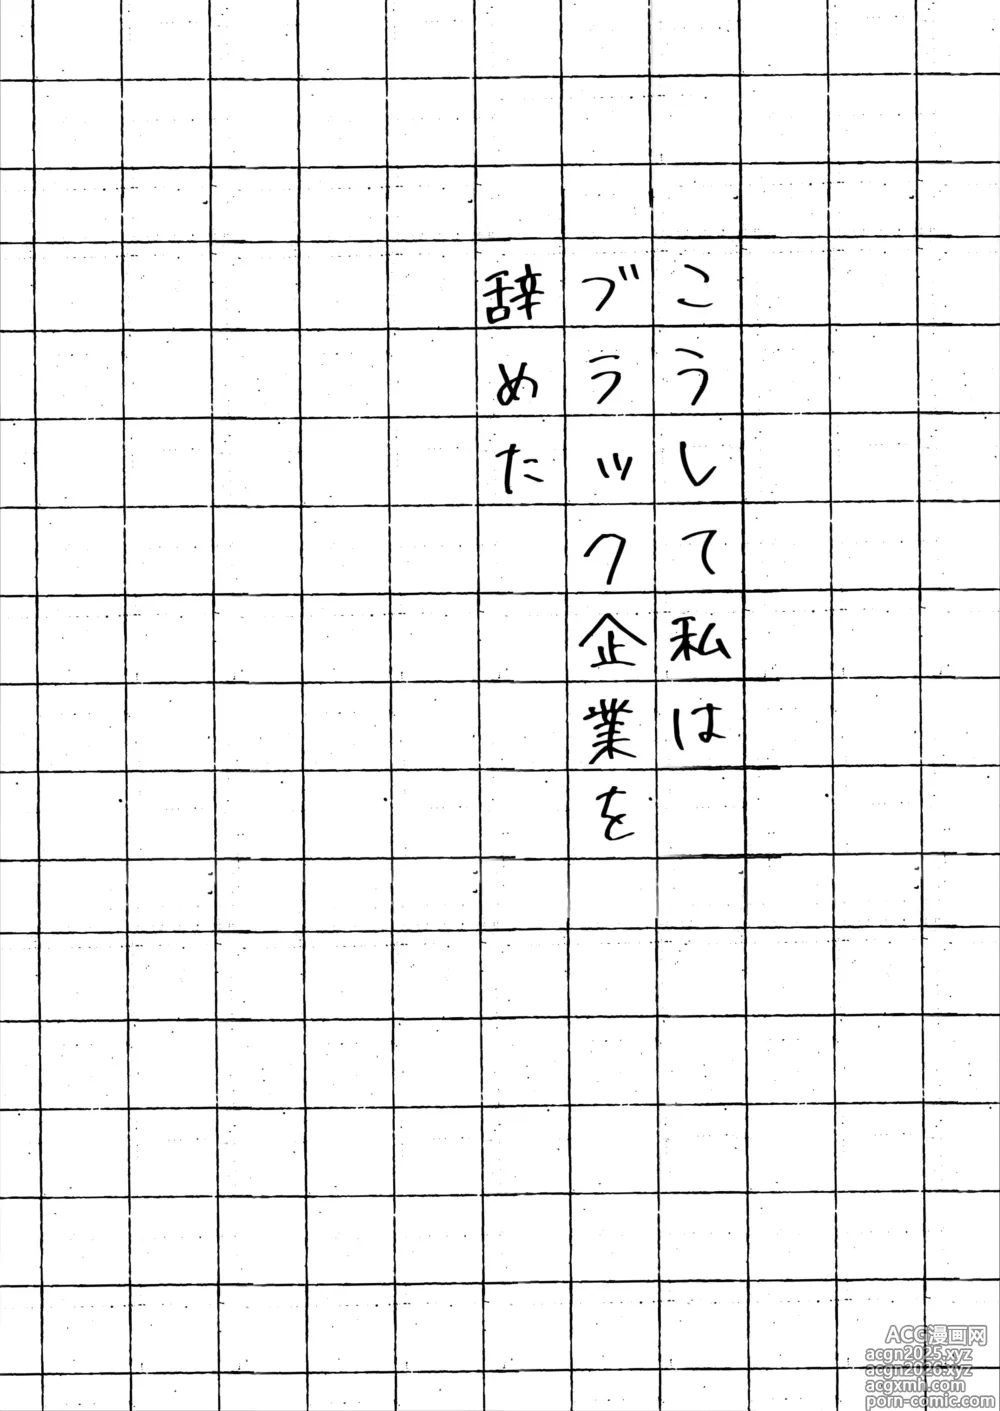 こうして私は
ブラック企業を
辞めた
ACG漫画网
acgn2025.xyz
acgn2026.xyz
acgxmh.com
porn-comic.com